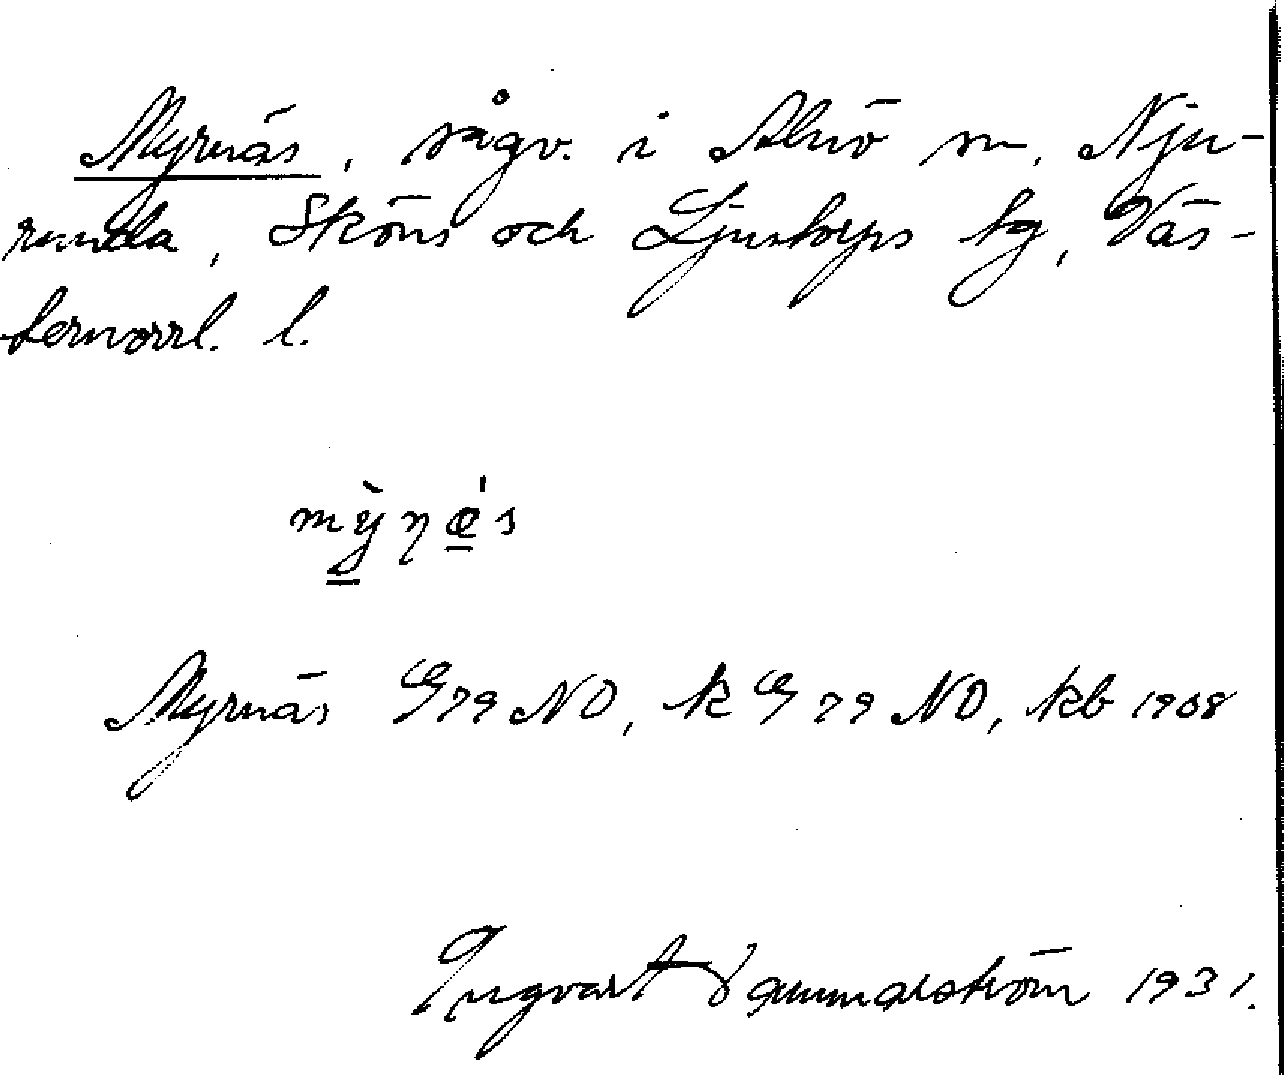 Myrnäs, sågv. i Alnö sn, Nju-
runda, Sköns och Ljustorps tg, Väs-
ternorrl. l.
mỳṇæ̀s
Myrnäs G79 NO, k G79 NO, kb 1908
Ingvart 1931.